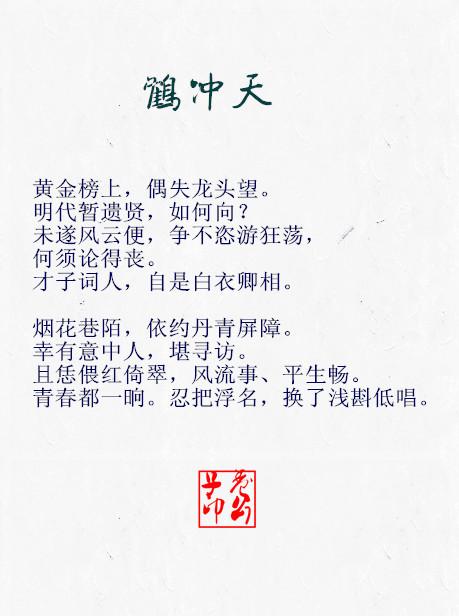 鹤冲天
黄金榜上，偶失龙头望。
明代暂遗贤，如何向？
未遂风云便，争不恣游狂荡，
何须论得丧。
才子词人，自是白衣卿相。
烟花巷陌，依约丹青屏障。
幸有意中人，堪寻访。
且恁偎红倚翠，风流事、平生畅。
青春都一晌。忍把浮名，换了浅斟低唱。